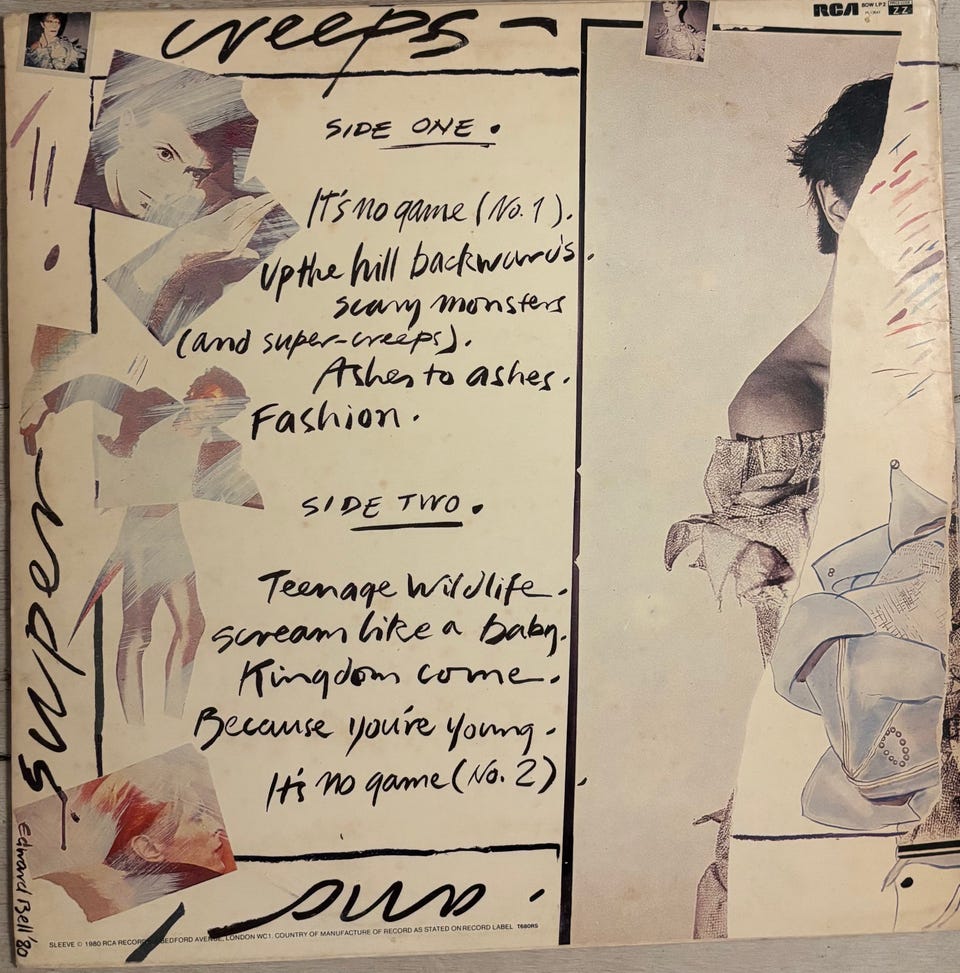 creeps-
RCA BOW LP 2
ZZ
SIDE ONE.
It's no game (No. 1).
Up the hill backwards.
scary monsters
(and super-creeps).
Ashes to ashes.
Fashion.
SIDE TWO.
Teenage Wildlife.
scream like a baby.
Kingdom come.
Because you're young.
It's no game (No. 2)
super
and
Edward Bell '80
SLEEVE © 1980 RCA RECORDS BEDFORD AVENUE, LONDON WC1. COUNTRY OF MANUFACTURE OF RECORD AS STATED ON RECORD LABEL T680RS